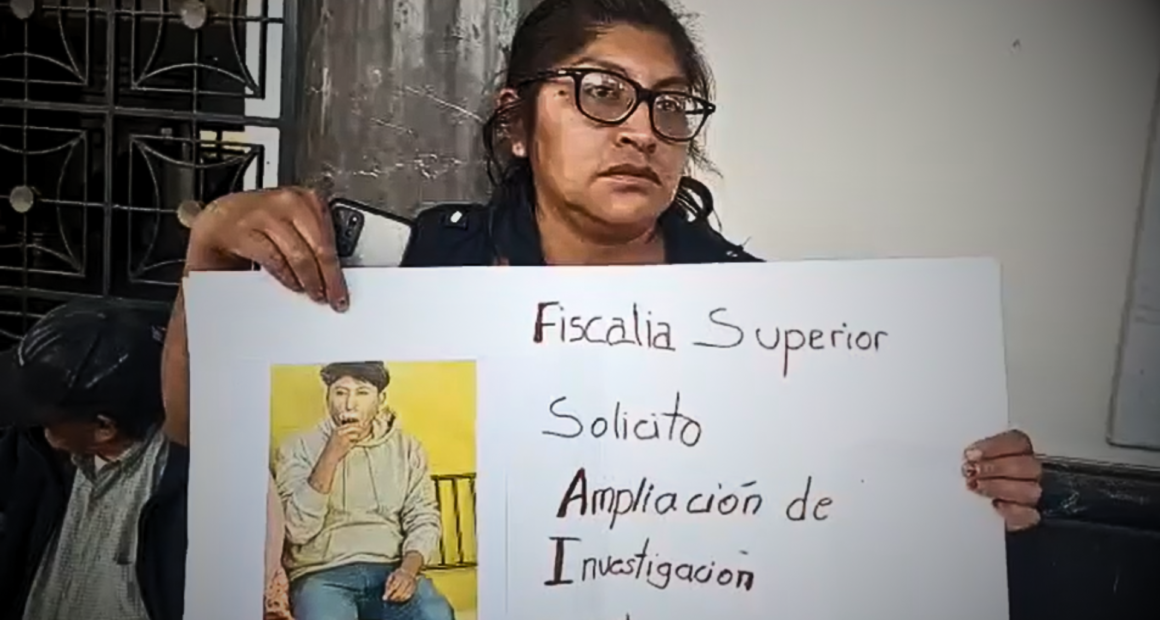 Fiscalia Superior
Solicito
Ampliación de
Investigación